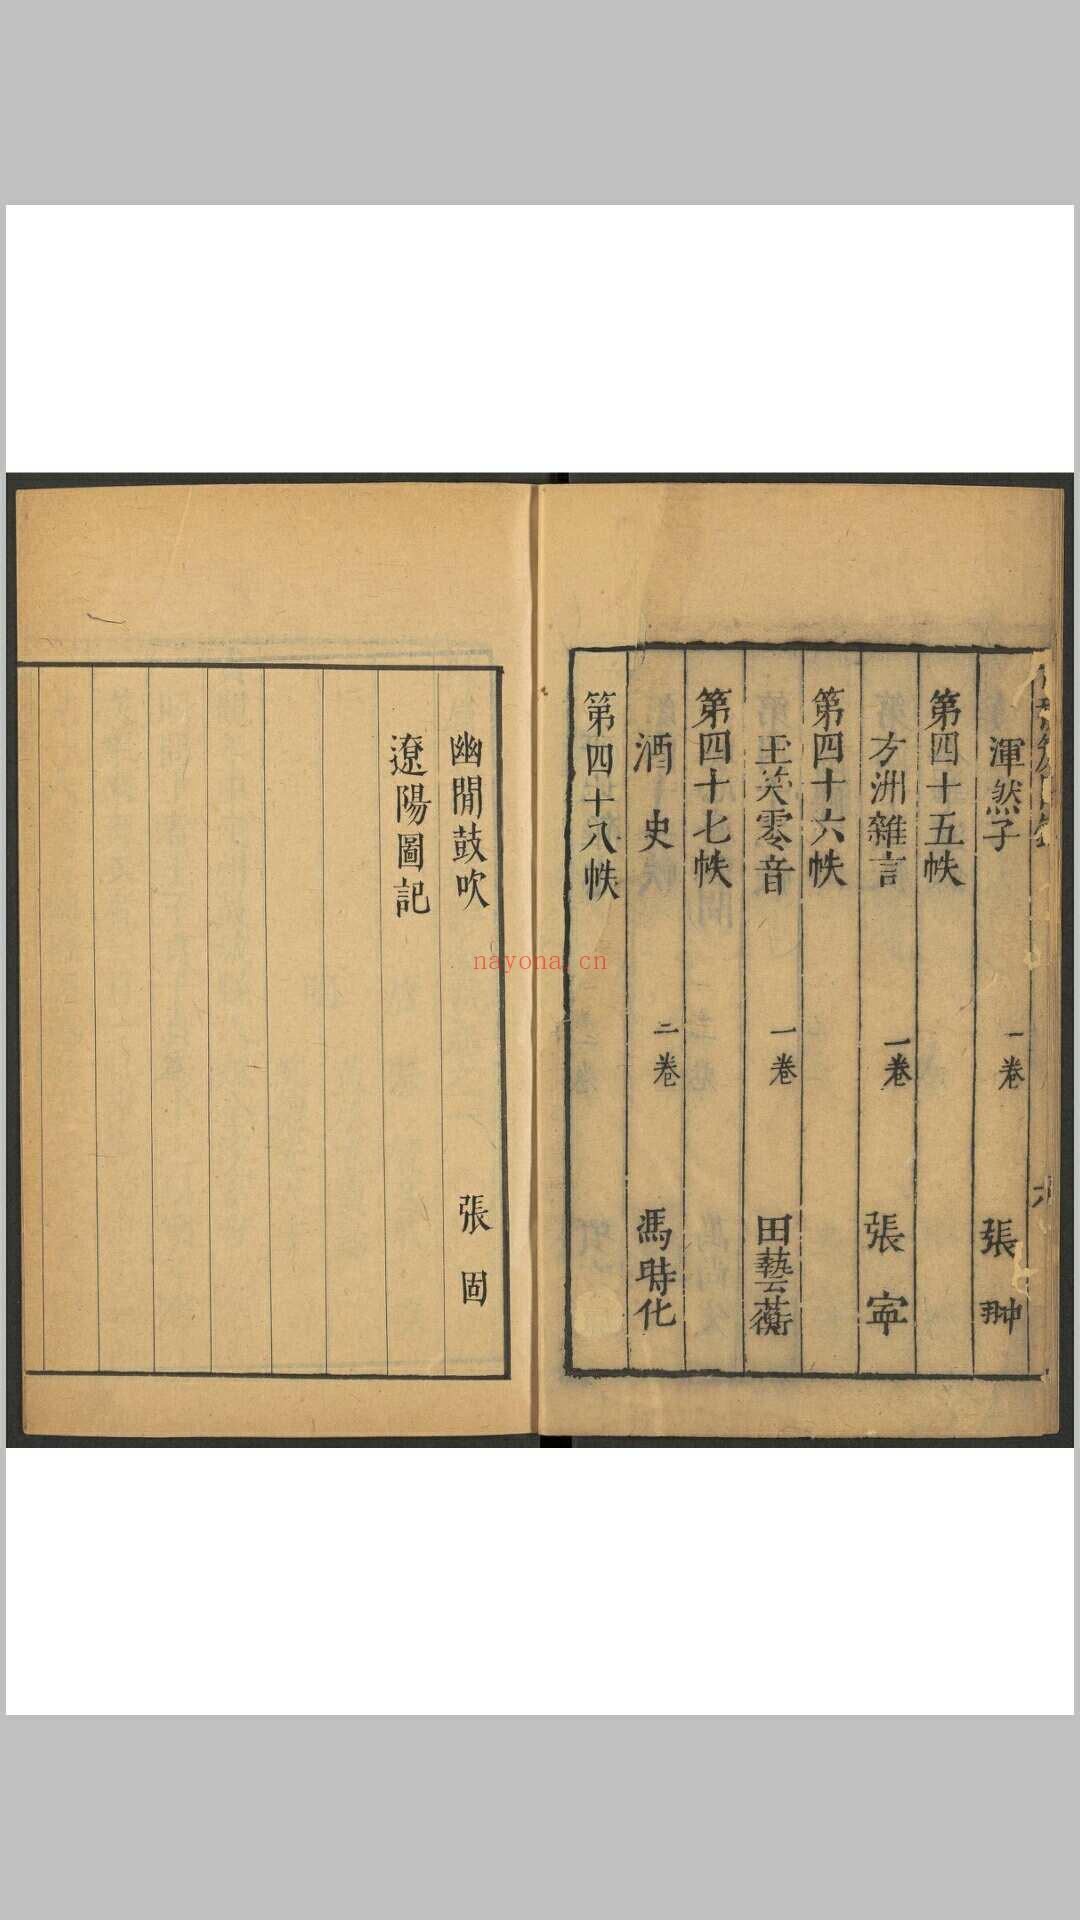 渾然子 一卷 張翀
第四十五帙
方洲雜言 一卷 張寧
第四十六帙
玉笑零音 一卷 田藝蘅
第四十七帙
酒史 二卷 馮時化
第四十八帙
幽閒鼓吹 張固
遼陽圖記
nayona.cn